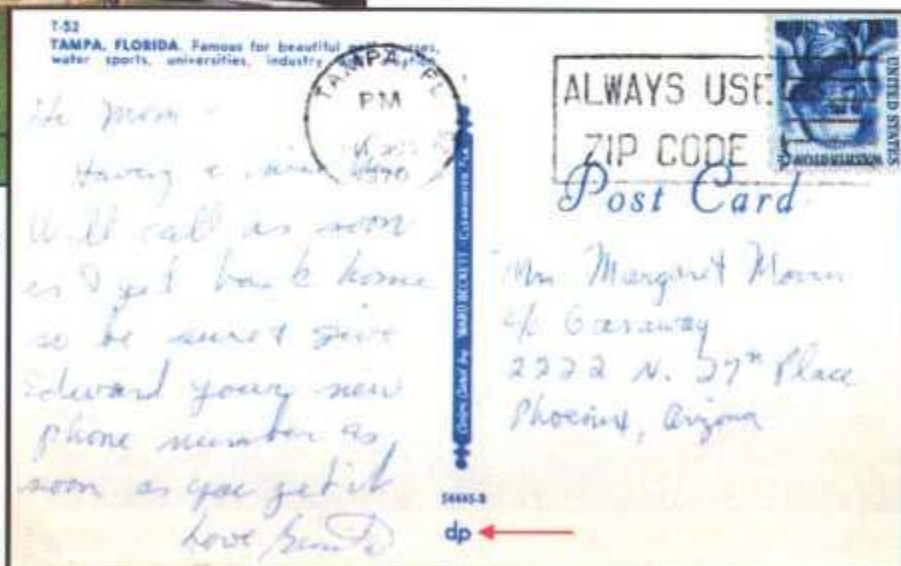 T-52
TAMPA, FLORIDA. Famous for beautiful
water sports, universities, industry
TAMPA, FL
PM
1970
ALWAYS USE
ZIP CODE
UNITED STATES
WASHINGTON
Post Card
Hi Mom -
Having a
Will call as soon
as I get back home
so be sure & give
Edward your new
phone number as
soon as you get it
Love
Color Card by WARD BECKETT - Clearwater, Fla.
Mrs Margaret Morris
c/o Garaway
2222 N. 27th Place
Phoenix, Arizona
54445-B
dp